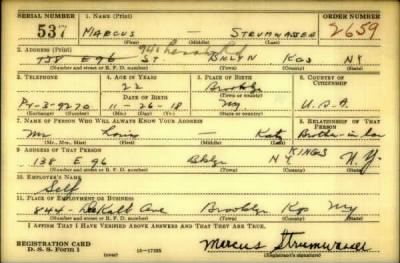 SERIAL NUMBER 1. NAME (Print) ORDER NUMBER
537 MARCUS — STRUMWASSER 2659
(First) (Middle) (Last)
2. ADDRESS (Print)
138 E 96 ST. BKLYN KGS NY
(Number and street or R. F. D. number) (Town) (County) (State)
3. TELEPHONE 4. AGE IN YEARS 5. PLACE OF BIRTH 6. COUNTRY OF CITIZENSHIP
22 Brooklyn
DATE OF BIRTH (Town or county)
PR-3-9270 11-26-18 NY U.S.A.
(Exchange) (Number) (Mo.) (Day) (Yr.) (State or country)
7. NAME OF PERSON WHO WILL ALWAYS KNOW YOUR ADDRESS 8. RELATIONSHIP OF THAT PERSON
Mr Louis — Katz Brother-in-law
(Mr., Mrs., Miss) (First) (Middle) (Last)
9. ADDRESS OF THAT PERSON
138 E 96 Bklyn NY KINGS N.Y.
(Number and street or R. F. D. number) (Town) (County) (State)
10. EMPLOYER'S NAME
Self
11. PLACE OF EMPLOYMENT OR BUSINESS
844- DeKalb Ave Brooklyn Kgs NY
(Number and street or R. F. D. number) (Town) (County) (State)
I AFFIRM THAT I HAVE VERIFIED ABOVE ANSWERS AND THAT THEY ARE TRUE.
REGISTRATION CARD
D. S. S. Form 1 (over) 16—17105 Marcus Strumwasser
(Registrant's signature)